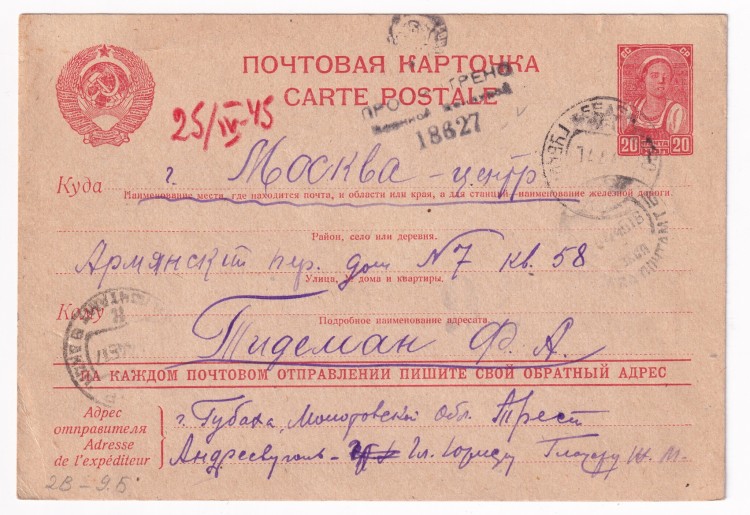 ПОЧТОВАЯ КАРТОЧКА
CARTE POSTALE
25/IV-45
ВОЕННОЙ
18627
20 20
Куда г. Москва - центр
Наименование места, где находится почта, и области или края, а для станций—наименование железной дороги.
Район, село или деревня.
Армянский пер. дом N7 кв. 58
Улица, № дома и квартиры.
Кому
Подробное наименование адресата.
Тидеман Ф. А.
НА КАЖДОМ ПОЧТОВОМ ОТПРАВЛЕНИИ ПИШИТЕ СВОЙ ОБРАТНЫЙ АДРЕС
Адрес отправителя
Adresse de l'expéditeur
г. Губаха, Молотовской обл. Трест
Андреевуголь - Гл. Юрисду
2В - 9.Б